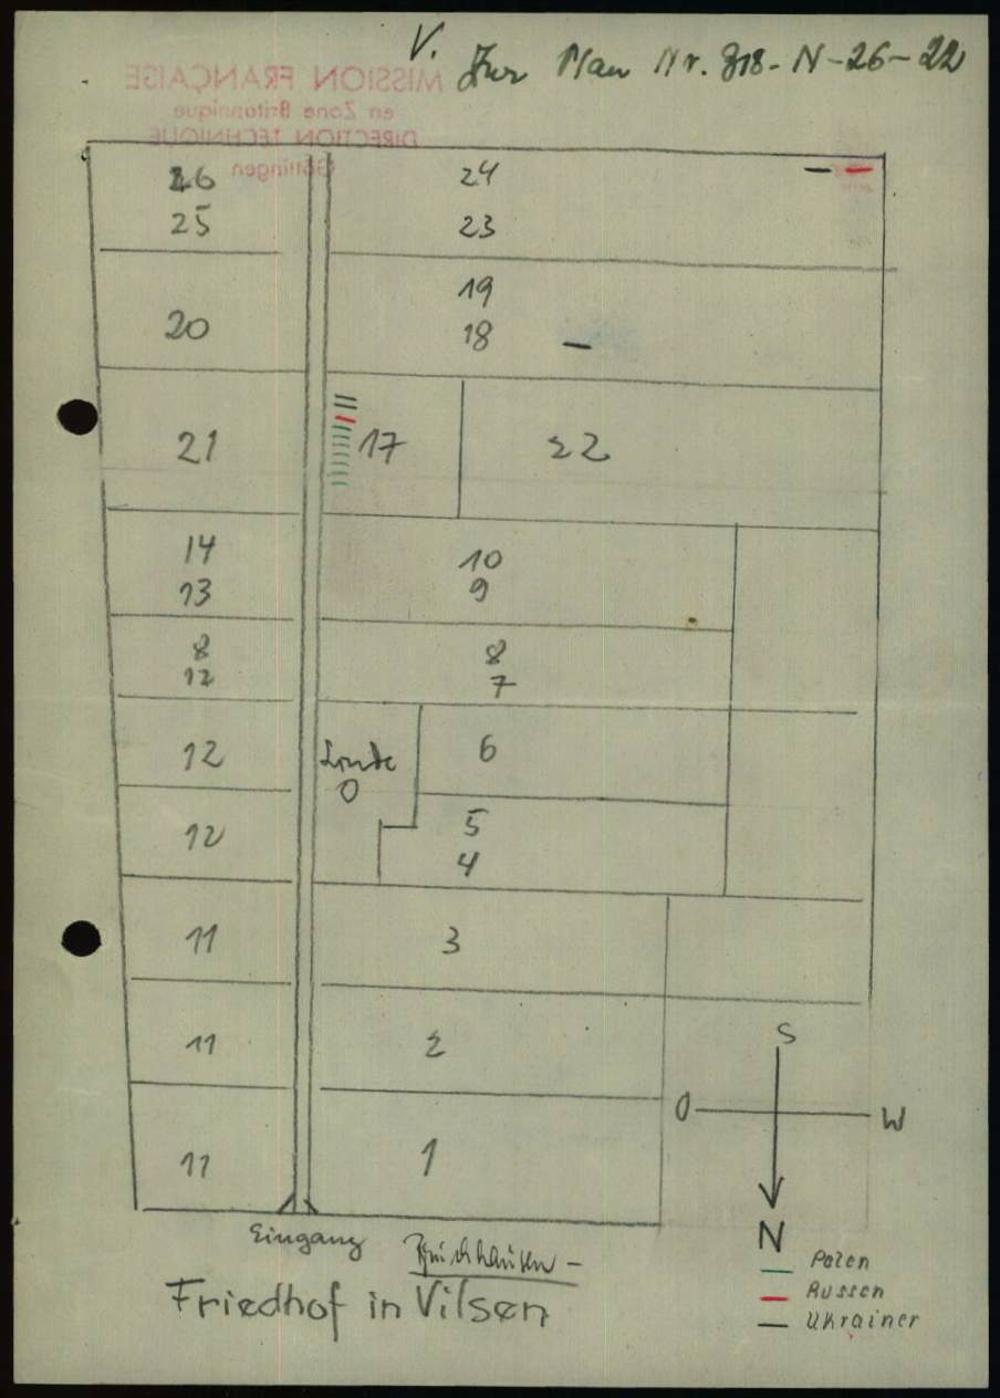 V. Zur Plan Nr. 318-N-26-22
MISSION FRANÇAISE
en Zone Britannique
DIRECTION TECHNIQUE
Göttingen
26 24
25 23
19
20 18
21 17 22
14 10
13 9
8 8
12 7
12 Linde 6
O
12 5
4
11 3
11 2
S
O W
11 1
N
Eingang
Friedhof in Vilsen
Polen
Russen
Ukrainer